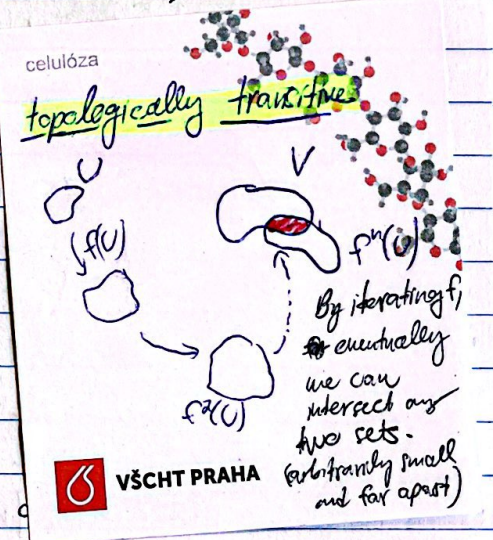 celulóza
topologically transitive
U
V
f(U)
fⁿ(U)
f²(U)
By iterating f,
eventually
we can
intersect any
two sets.
(arbitrarily small
and far apart)
VŠCHT PRAHA